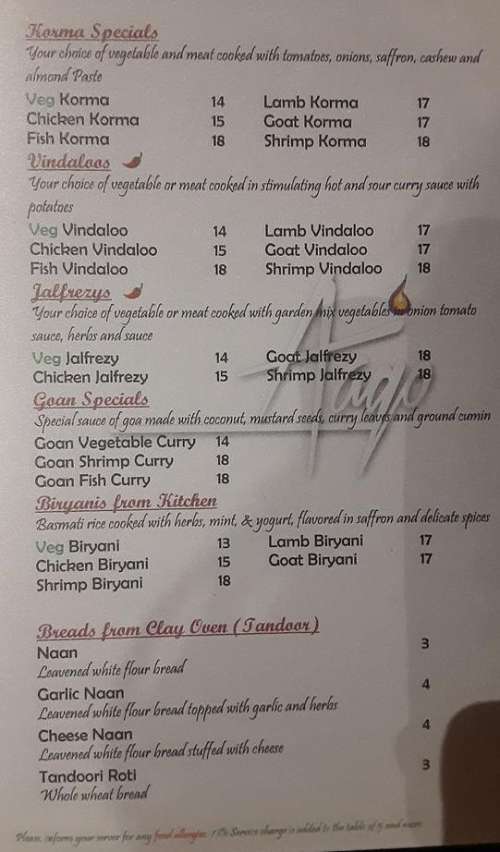 Korma Specials
Your choice of vegetable and meat cooked with tomatoes, onions, saffron, cashew and
almond Paste
Veg Korma 14 Lamb Korma 17
Chicken Korma 15 Goat Korma 17
Fish Korma 18 Shrimp Korma 18
Vindaloos
Your choice of vegetable or meat cooked in stimulating hot and sour curry sauce with
potatoes
Veg Vindaloo 14 Lamb Vindaloo 17
Chicken Vindaloo 15 Goat Vindaloo 17
Fish Vindaloo 18 Shrimp Vindaloo 18
Jalfrezys
Your choice of vegetable or meat cooked with garden mix vegetables in onion tomato
sauce, herbs and sauce
Veg Jalfrezy 14 Goat Jalfrezy 18
Chicken Jalfrezy 15 Shrimp Jalfrezy 18
Goan Specials
Special sauce of goa made with coconut, mustard seeds, curry leaves and ground cumin
Goan Vegetable Curry 14
Goan Shrimp Curry 18
Goan Fish Curry 18
Biryanis from Kitchen
Basmati rice cooked with herbs, mint, & yogurt, flavored in saffron and delicate spices
Veg Biryani 13 Lamb Biryani 17
Chicken Biryani 15 Goat Biryani 17
Shrimp Biryani 18
Breads from Clay Oven (Tandoor)
Naan 3
Leavened white flour bread
Garlic Naan 4
Leavened white flour bread topped with garlic and herbs
Cheese Naan 4
Leavened white flour bread stuffed with cheese
Tandoori Roti 3
Whole wheat bread
Please inform your server for any food allergies. Service charge is added to the table of 5 and more